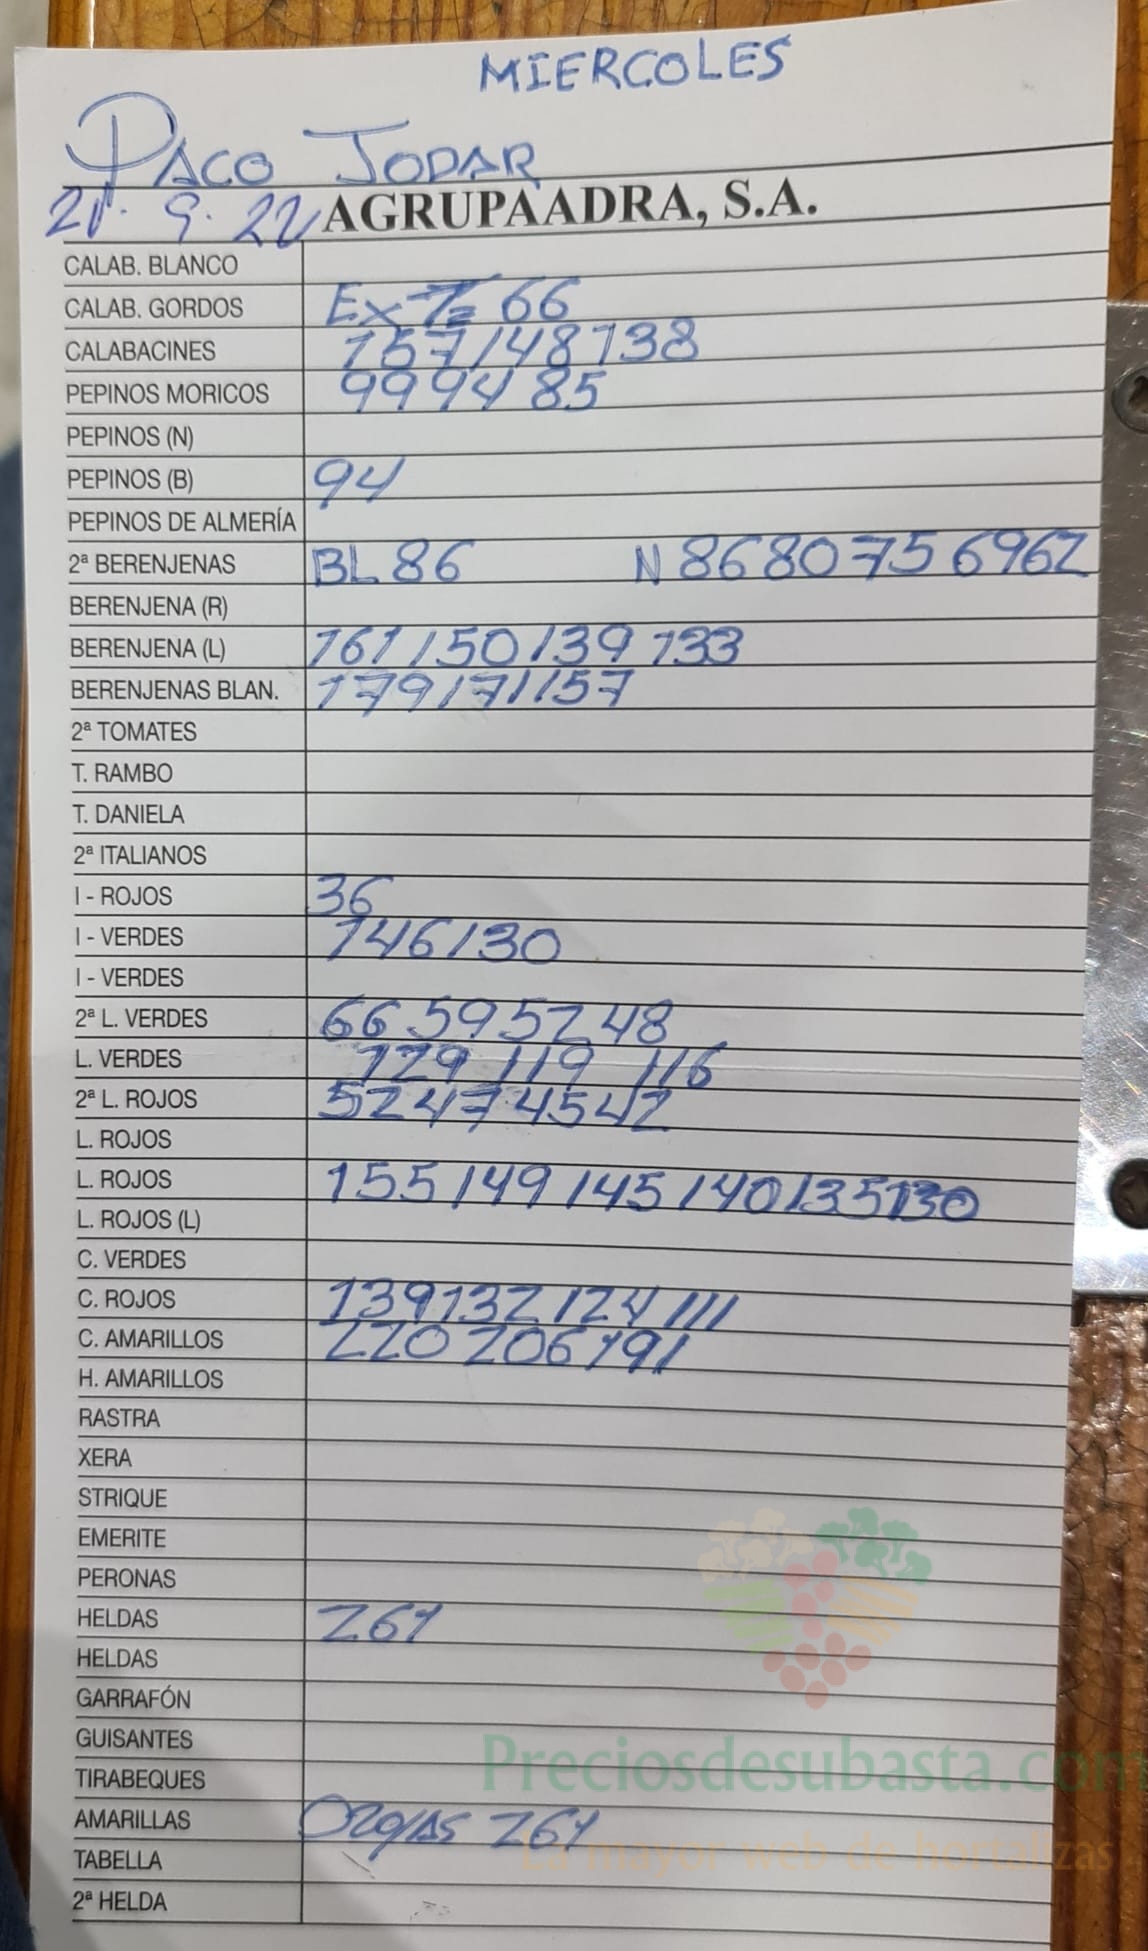 MIERCOLES
PACO JODAR
21. 9. 22 AGRUPAADRA, S.A.
CALAB. BLANCO
CALAB. GORDOS Ex 66
CALABACINES 157 148 138
PEPINOS MORICOS 99 94 85
PEPINOS (N)
PEPINOS (B) 94
PEPINOS DE ALMERÍA
2ª BERENJENAS BL 86 N 86 80 75 69 62
BERENJENA (R)
BERENJENA (L) 161 150 139 133
BERENJENAS BLAN. 179 171 157
2ª TOMATES
T. RAMBO
T. DANIELA
2ª ITALIANOS
I - ROJOS 36
I - VERDES 146 130
I - VERDES
2ª L. VERDES 66 59 52 48
L. VERDES 129 119 116
2ª L. ROJOS 52 47 45 42
L. ROJOS
L. ROJOS 155 149 145 140 135 130
L. ROJOS (L)
C. VERDES
C. ROJOS 139 132 124 111
C. AMARILLOS 220 206 191
H. AMARILLOS
RASTRA
XERA
STRIQUE
EMERITE
PERONAS
HELDAS 261
HELDAS
GARRAFÓN
GUISANTES
Preciosdesubasta.com
TIRABEQUES
AMARILLAS 261
La mayor web de hortalizas
TABELLA
2ª HELDA